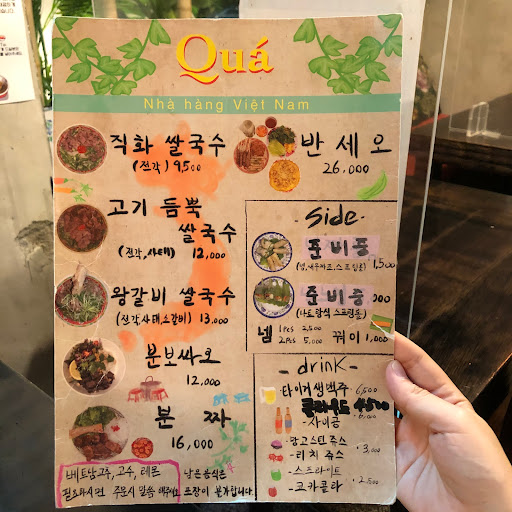 Quá
Nhà hàng Việt Nam
직화 쌀국수
(전각) 9,500
고기 듬뿍
쌀국수
(전각, 사태) 12,000
왕갈비 쌀국수
(전각 사태 소갈비) 13,000
분보싸오
12,000
분 짜
16,000
베트남고추, 고수, 레몬
필요하시면 주문시 말씀 해주세요
남은 음식은
포장이 불가합니다
반 세 오
26,000
- Side -
준비중
1,500
준비중
넴 1Pcs 2,500
2Pcs 5,000
꿔이 1,000
- drink -
타이거 생맥주 6,500
클라우드 4500
- 사이공 6,000
- 망고스틴 쥬스
- 리치 쥬스 3,000
- 스프라이트
- 코카콜라 2,500